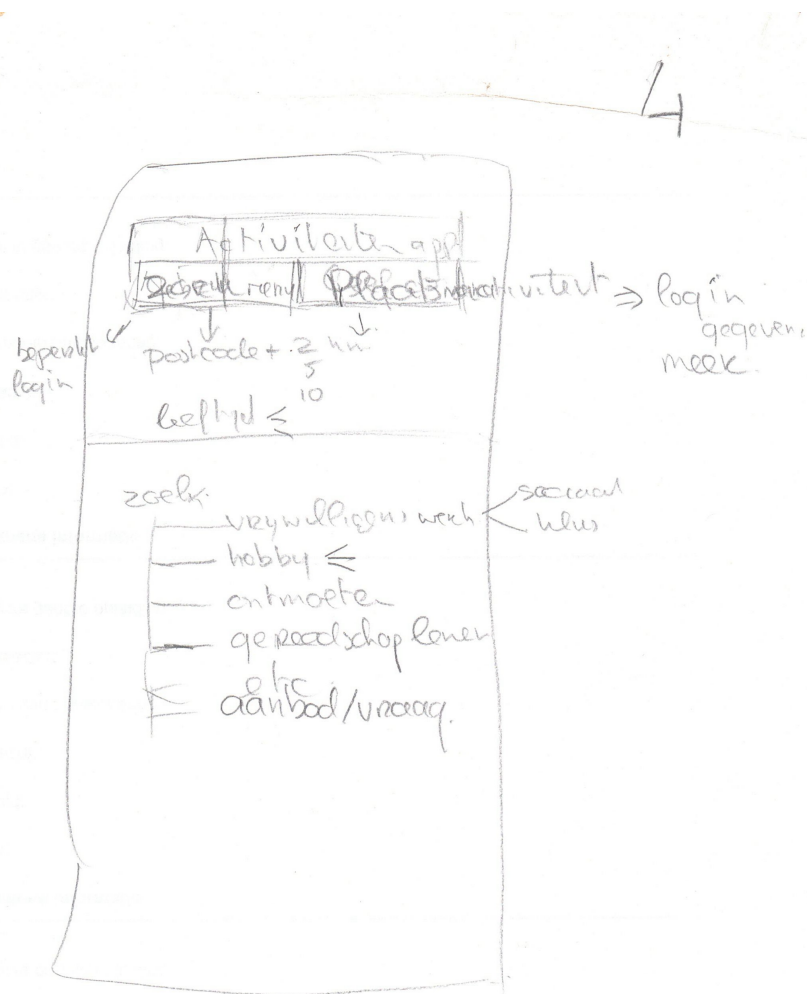 4
Activiteiten app
menu Plaats activiteit ⇒ login
gegevens
meer.
beperkt
login
postcode + 2 km
5
10
leeftijd
zoek
vrijwilligers werk
sociaal
klus
hobby
ontmoeten
gereedschap lenen
etc
aanbod/vraag.